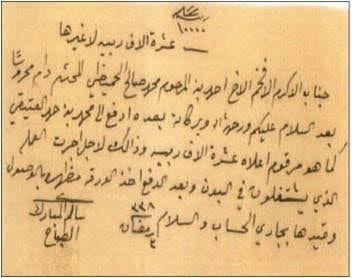 ١٠٠٠٠
عشرة الاف ربيه لا غيرها
جناب الاكرم الافخم الاخ احمد بن المرحوم محمد صالح الحميضي المحترم دام محروسا
بعد السلام عليكم ورحمة الله وبركاته بعده ادفع الى محمد بن حمد العتيقي
كما هو مرقوم اعلاه عشرة الاف ربيه وذالك لاجل اجرت العلم
الذي يشتغلون في البدن وبعد الدفع اخذ الورقه مظهره بالوصول
وقيدها بجاري الحساب والسلام
٣ رمضان ٣٣٨
سالم المبارك
الصباح